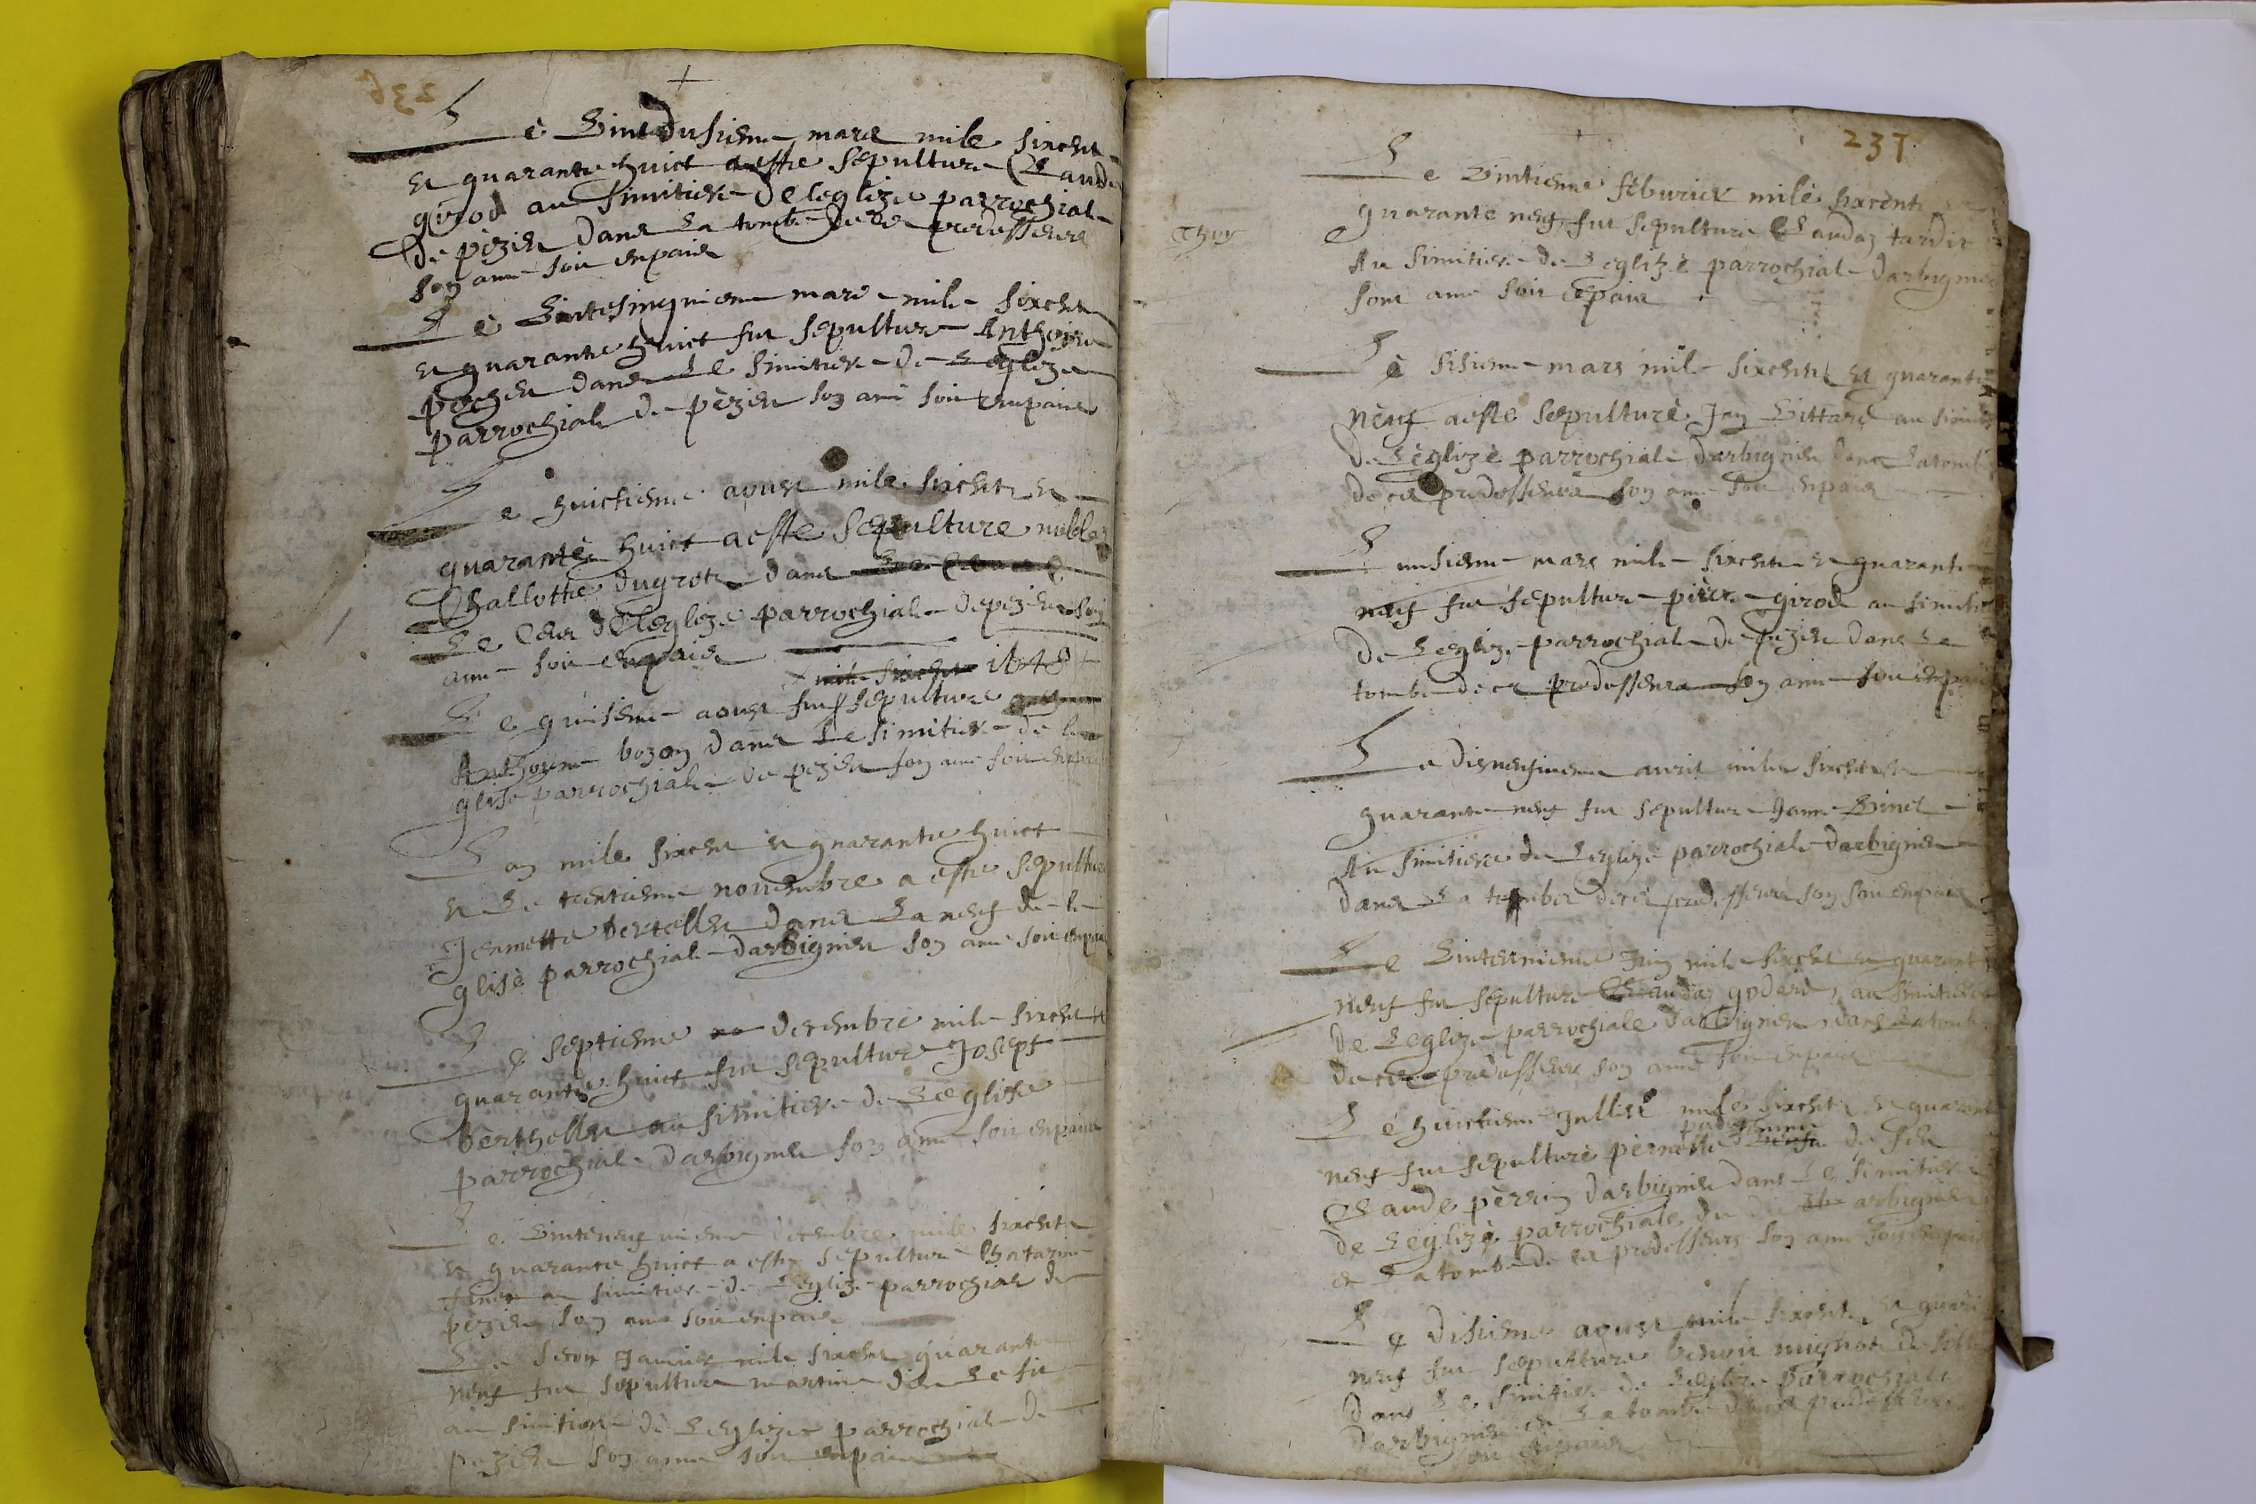 236
Le Vintdusiene mars mile sixcent
et quarante huict a estre sepulture Claude
girod au simitiere de leglize parrochial
de pezieu dans la tombe de ces predesseurs
son ame soit enpaix
Le Vintesinquiene mars mile sixcent
et quarante huict fut sepulture Anthoine
pochet dans le simitiere de Leglize
parrochiale de pèzieu son ame soit enpaix
Le huictieme aoust mile sixcent et
quarante huict a este sepulture noble
Challotte dugrot dans
Le Ceur de leglize parrochiale de pezieu son
ame soit enpaix
mile sixcent 1648
Le quisieme aoust fut sepulture
Anthoyne bozon dans le simitiere de le
glise parrochiale de pezieu son ame soit enpaix
Lan mile sixcent et quarante huict
et le trentieme novembre a este sepulture
Jenmette bertellet dans La neuf de le
glisè parrochiale darbignieu son ame soit enpaix
Le septieme decembre mile sixcent et
quarante huict fut sepulture Josept
bèrthellet au simitiere de Leglise
parrochiale darbignieu son ame soit enpaix
Le Vinteneufvieme decembre mile sixcent
et quarante huict a este sepulture Chatarine
au simitiere de Leglize parrochiale de
pèzieu son ame soit enpaix
Le segon Janvier mile sixcent quarante
neuf fut sepulture martine
au simitiere de Leglize parrochiale de
pezieu son ame soit enpaix
237
Le Vintieme feburier milè sixcent et
thuy
quarante neuf fut sepulture Claudaz tardit
Au simitiere de Leglizè parrochiale darbignieu
sont ame soit epaix
Lè sisieme mars mile sixcent et quarante
nèuf a este sepulturè Jan Littard au simitiere
de Lèglizè parrochiale darbignieu dans la tombe
de ces predesseurs son ame soit enpaix
L unsieme mars mile sixcent et quarante
neuf fut sepulture pierre girod au simitiere
de Leglize parrochiale de pezieu dans La
tombe de ces predesseurs son ame soit enpaix
Le disneufvieme avril mile sixcent et
quarante neuf fut sepulture Janne Binet
Au simitiere de Leglize parrochiale darbignieu
dans La tombe de ces predesseurs son soit enpaix
Le Juin mile sixcent et quarante
neuf fut sepulture Claudaz godard au simitiere
de Leglize parrochiale darbignieu dans la tombe
de ces predesseurs son ame soit enpaix
Lé huictieme Jullet mile sixcent et quarante
neuf fut sepulturè pèrnette de feu
Claude pèrrin darbignieu dans Le simitiere
de Leglizè parrochiale du dit arbignieu
et La tombe de ces predesseurs son ame soit enpaix
Le disieme aoust mile sixcent et quarante
neuf fut sepulture benoit mignot
dans Le simitiere de Leglize parrochiale
darbignieu et La tombe de ces predesseurs
soit enpaix